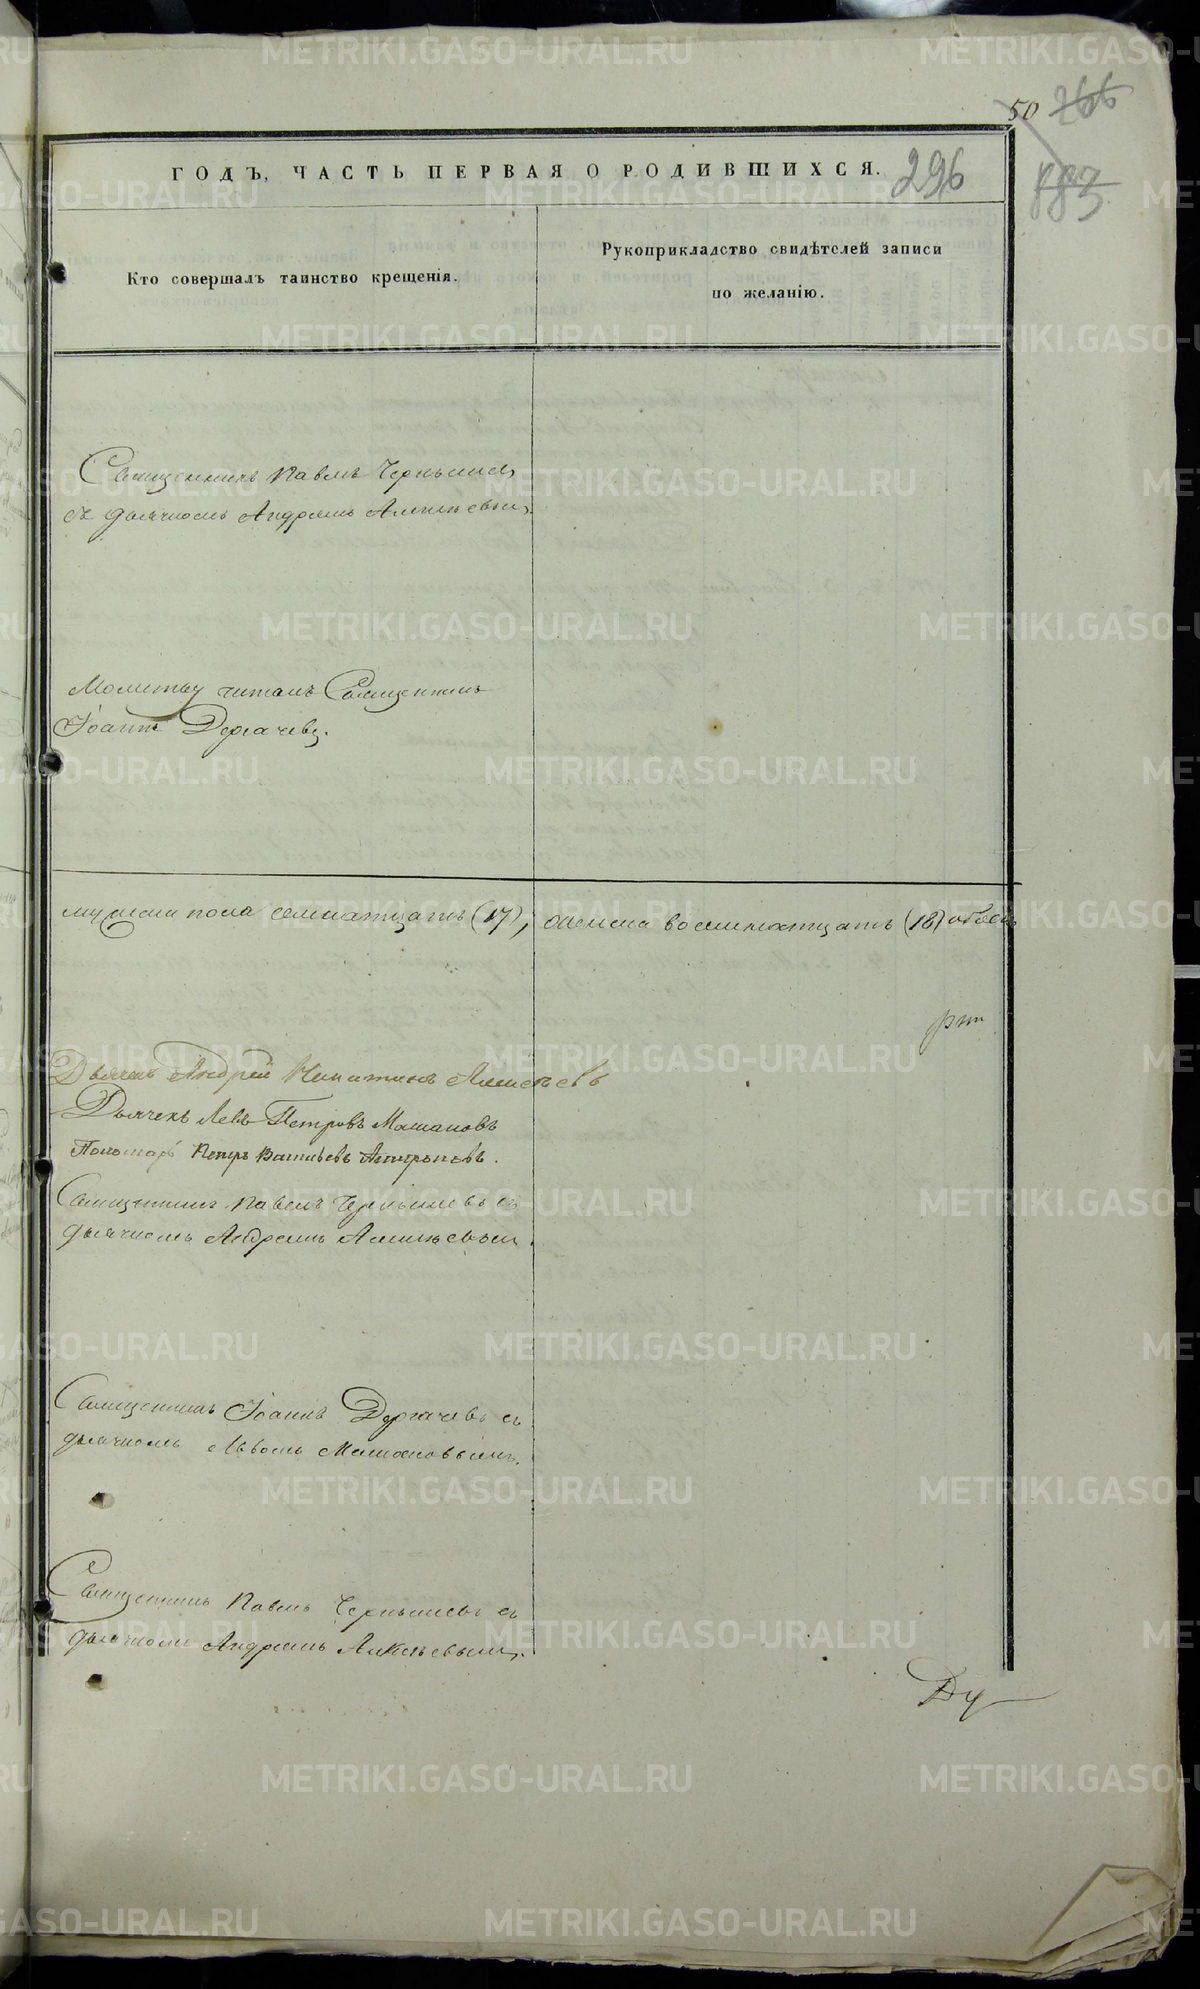 50 266
883
ГОДЪ, ЧАСТЬ ПЕРВАЯ О РОДИВШИХСЯ. 296
Кто совершалъ таинство крещенія.
Рукоприкладство свидѣтелей записи
по желанію.
Священникъ Павелъ Чернышевъ
съ дьячкомъ Андреемъ Алексѣевымъ
Молитву читалъ Священникъ
Іоаннъ Дергачевъ.
мужеска пола семнатцать (17), женска восемнатцать (18) обоего
Дьячекъ Андрей Никитинъ Алексѣевъ
Дьячекъ Левъ Петровъ Машановъ
Пономарь Петръ Васильевъ
Священникъ Павелъ Чернышевъ съ
дьячкомъ Андреемъ Алексѣевымъ.
Священникъ Іоаннъ Дергачевъ съ
дьячкомъ Львомъ Машановымъ.
Священникъ Павелъ Чернышевъ съ
дьячкомъ Андреемъ Алексѣевымъ.
METRIKI.GASO-URAL.RU